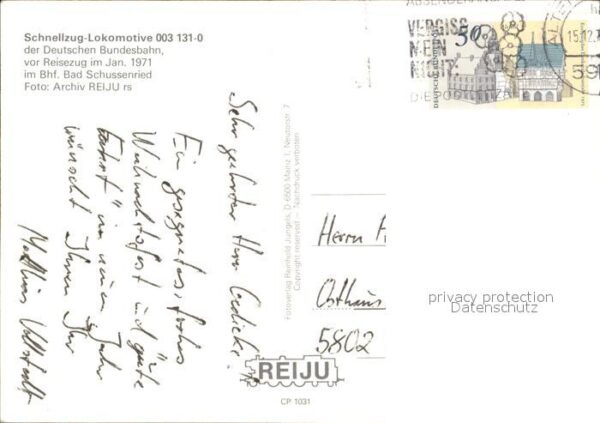 Schnellzug-Lokomotive 003 131-0
der Deutschen Bundesbahn,
vor Reisezug im Jan. 1971
im Bhf. Bad Schussenried
Foto: Archiv REIJU rs
Sehr geehrter Herr
Ein gesegnetes, frohes
Weihnachtsfest und gute
Fahrt" im neuen Jahr
wünscht Ihnen Ihr
Fotoverlag Reinhold Jungels, D 6500 Mainz 1, Neutorstr. 7
Copyright reserved – Nachdruck verboten
REIJU
CP 1031
VERGISS
MEIN
NICHT.
50
DEUTSCHE BUNDESPOST
15.12.
59
Herrn
Osthaus
5802
privacy protection
Datenschutz